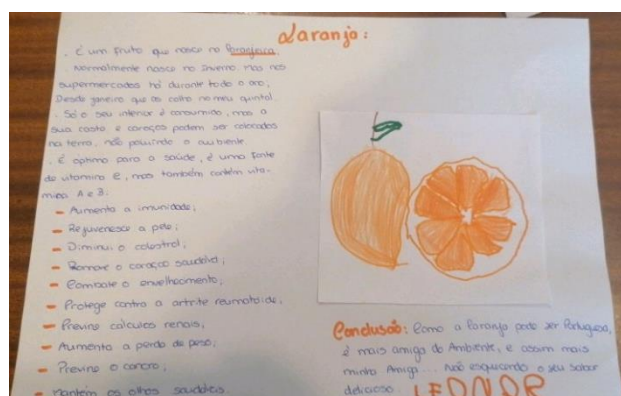 Laranja:
. É um fruto que nasce na laranjeira.
Normalmente nasce no Inverno, mas nos
supermercados há durante todo o ano,
Desde janeiro que as colho no meu quintal.
. Só o seu interior é consumido, mas a
sua casca, e caroços podem ser colocados
na terra, não poluindo o ambiente.
. É optimo para a saúde, é uma fonte
de vitamina C, mas também contém vita-
mina A e B:
- Aumenta a imunidade;
- Rejuvenesce a pele;
- Diminui o colestrol;
- coração saudável;
- Combate o envelhecimento;
- Protege contra a artrite reumatoide;
- Previne cálculos renais;
- Aumenta a perda de peso;
- Previne o cancro;
- Mantém os olhos saudáveis.
Conclusão: Como a laranja pode ser Portuguesa,
é mais amiga do Ambiente, e assim mais
minha Amiga... Não esquecendo o seu sabor
delicioso. LEONOR